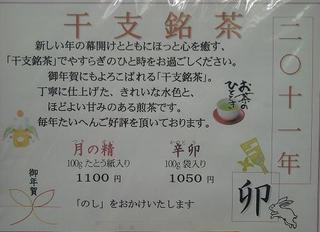 干支銘茶
二〇十一年
新しい年の幕開けとともにほっと心を癒す、
「干支銘茶」でやすらぎのひと時をお過ごしください。
御年賀にもよろこばれる「干支銘茶」。
丁寧に仕上げた、きれいな水色と、
ほどよい甘みのある煎茶です。
毎年たいへんご好評を頂いております。
お茶の
ひととき
月の精
100g たとう紙入り
1100 円
辛卯
100g 袋入り
1050 円
卯
御年賀
「のし」をおかけいたします